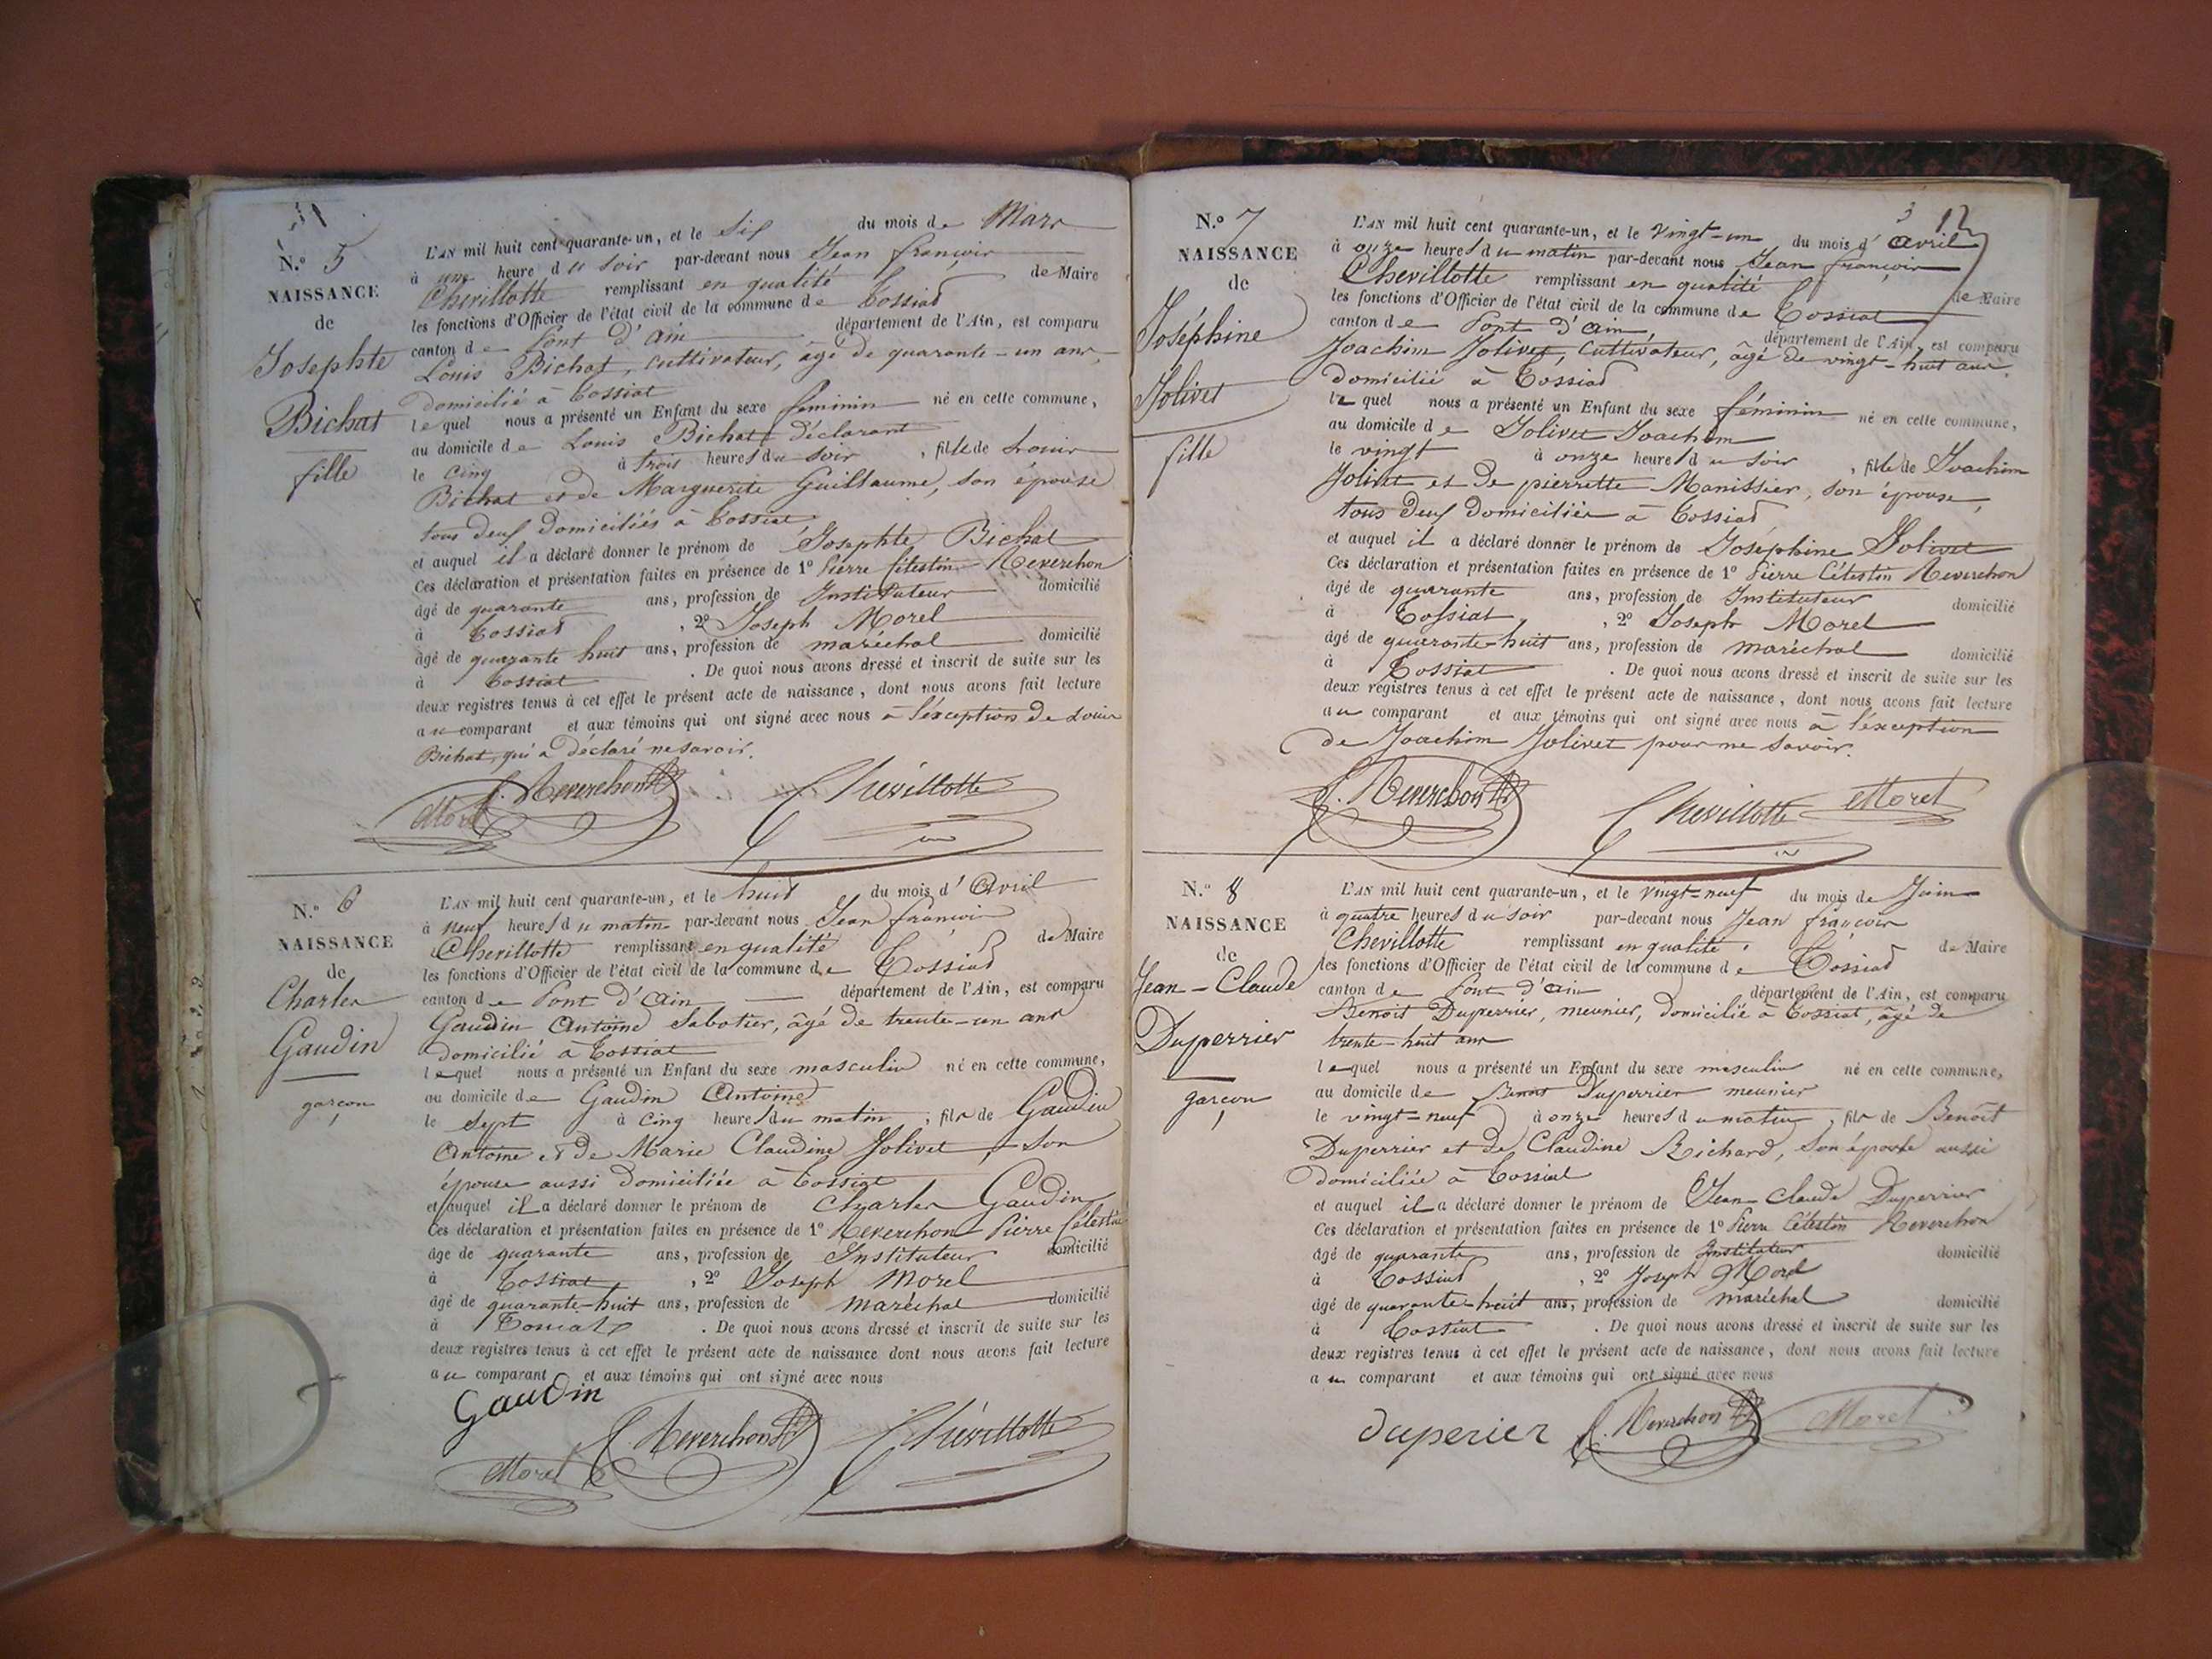 N.o 5
NAISSANCE
de
Josephte
Bichat
fille
L'AN mil huit cent quarante-un, et le six du mois de Mars
à une heure du soir par-devant nous Jean françois
Chevillotte remplissant en qualité de Maire
les fonctions d'Officier de l'état civil de la commune de Tossiat
canton de Pont d'ain département de l'Ain, est comparu
Louis Bichat, cultivateur, âgé de quarante-un ans,
domicilié à Tossiat
lequel nous a présenté un Enfant du sexe féminin né en cette commune,
au domicile de Louis Bichat déclarant
le cinq à trois heures du soir, fille de Louis
Bichat et de Marguerite Guillaume, son épouse
tous deux domiciliés à Tossiat
et auquel il a déclaré donner le prénom de Josephte Bichat
Ces déclaration et présentation faites en présence de 1o Pierre Célestin Reverchon
âgé de quarante ans, profession de Instituteur domicilié
à Tossiat, 2o Joseph Morel
âgé de quarante huit ans, profession de maréchal domicilié
à Tossiat. De quoi nous avons dressé et inscrit de suite sur les
deux registres tenus à cet effet le présent acte de naissance, dont nous avons fait lecture
au comparant et aux témoins qui ont signé avec nous à l'éxception de Louis
Bichat, qui a déclaré ne savoir.
Morel C. Reverchon Chevillotte
N.o 6
NAISSANCE
de
Charles
Gaudin
garçon
L'AN mil huit cent quarante-un, et le huit du mois d'Avril
à neuf heures du matin par-devant nous Jean françois
Chevillotte remplissant en qualité de Maire
les fonctions d'Officier de l'état civil de la commune de Tossiat
canton de Pont d'ain département de l'Ain, est comparu
Gaudin Antoine Sabotier, âgé de trente-un ans
domicilié à Tossiat
lequel nous a présenté un Enfant du sexe masculin né en cette commune,
au domicile de Gaudin Antoine
le sept à cinq heures du matin, fils de Gaudin
Antoine et de Marie Claudine Jolivet, son
épouse aussi domiciliée à Tossiat
et auquel il a déclaré donner le prénom de Charles Gaudin
Ces déclaration et présentation faites en présence de 1o Reverchon Pierre Célestin
âgé de quarante ans, profession de Instituteur domicilié
à Tossiat, 2o Joseph Morel
âgé de quarante-huit ans, profession de maréchal domicilié
à Tossiat. De quoi nous avons dressé et inscrit de suite sur les
deux registres tenus à cet effet le présent acte de naissance dont nous avons fait lecture
au comparant et aux témoins qui ont signé avec nous
Gaudin
Morel C. Reverchon Chevillotte
12
N.o 7
NAISSANCE
de
Joséphine
Jolivet
fille
L'AN mil huit cent quarante-un, et le vingt-un du mois d'avril
à onze heures du matin par-devant nous Jean françois
Chevillotte remplissant en qualité de Maire
les fonctions d'Officier de l'état civil de la commune de Tossiat
canton de Pont d'ain, département de l'Ain, est comparu
Joachim Jolivet, cultivateur, âgé de vingt-huit ans,
domicilié à Tossiat
lequel nous a présenté un Enfant du sexe féminin né en cette commune,
au domicile de Jolivet Joachim
le vingt à onze heures du soir, fille de Joachim
Jolivet et de pierrette Manissier, son épouse,
tous deux domiciliés à Tossiat
et auquel il a déclaré donner le prénom de Joséphine Jolivet
Ces déclaration et présentation faites en présence de 1o Pierre Célestin Reverchon
âgé de quarante ans, profession de Instituteur domicilié
à Tossiat, 2o Joseph Morel
âgé de quarante-huit ans, profession de maréchal domicilié
à Tossiat. De quoi nous avons dressé et inscrit de suite sur les
deux registres tenus à cet effet le présent acte de naissance, dont nous avons fait lecture
au comparant et aux témoins qui ont signé avec nous à l'éxception
de Joachim Jolivet pour ne savoir.
C. Reverchon Chevillotte Morel
N.o 8
NAISSANCE
de
Jean-Claude
Duperrier
garçon
L'AN mil huit cent quarante-un, et le vingt-neuf du mois de Juin
à quatre heures du soir par-devant nous Jean françois
Chevillotte remplissant en qualité de Maire
les fonctions d'Officier de l'état civil de la commune de Tossiat
canton de Pont d'ain département de l'Ain, est comparu
Benoit Duperrier, meunier, domicilié à Tossiat, âgé de
trente-huit ans
lequel nous a présenté un Enfant du sexe masculin né en cette commune,
au domicile de Benoit Duperrier meunier
le vingt-neuf à onze heures du matin, fils de Benoît
Duperrier et de Claudine Richard, son épouse aussi
domiciliée à Tossiat
et auquel il a déclaré donner le prénom de Jean Claude Duperrier
Ces déclaration et présentation faites en présence de 1o Pierre Célestin Reverchon
âgé de quarante ans, profession de Instituteur domicilié
à Tossiat, 2o Joseph Morel
âgé de quarante-huit ans, profession de maréchal domicilié
à Tossiat. De quoi nous avons dressé et inscrit de suite sur les
deux registres tenus à cet effet le présent acte de naissance, dont nous avons fait lecture
au comparant et aux témoins qui ont signé avec nous
duperier C. Reverchon Morel